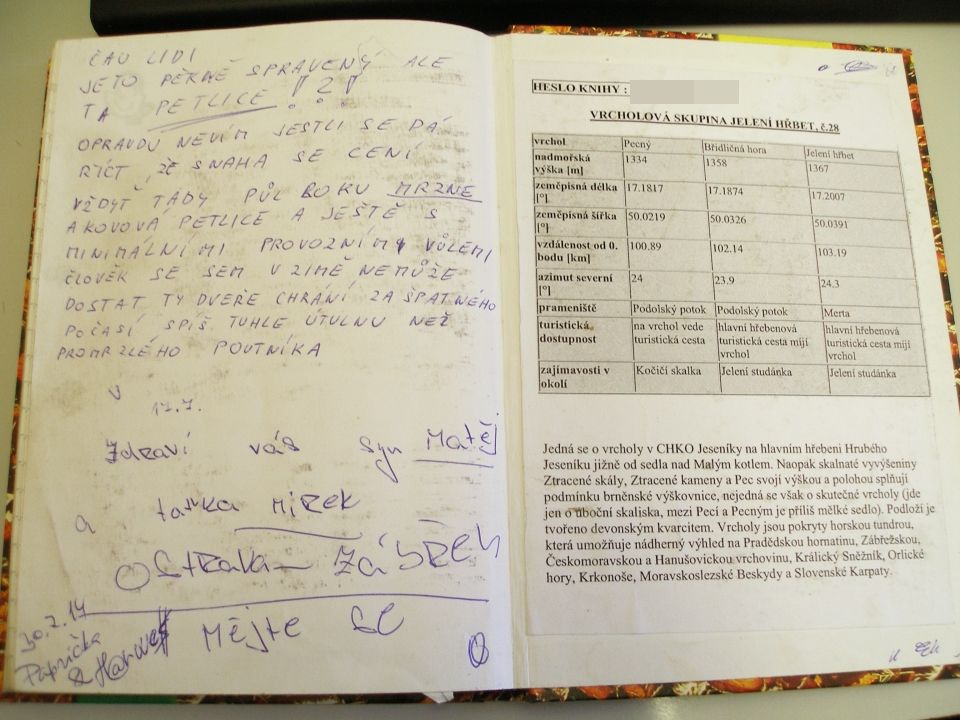 ČAU LIDI
JETO PĚKNĚ SPRAVENÝ ALE
TA PETLICE ! ? !
OPRAVDU NEVÍM JESTLI SE DÁ
ŘÍCT, ŽE SNAHA SE CENÍ
VŽDYŤ TADY PŮL ROKU MRZNE
A KOVOVÁ PETLICE A JEŠTĚ S
MINIMÁLNÍMI PROVOZNÍMI VŮLEMI
ČLOVĚK SE SEM V ZIMĚ NEMŮŽE
DOSTAT TY DVEŘE CHRÁNÍ ZA ŠPATNÉHO
POČASÍ SPÍŠ TUHLE ÚTULNU NEŽ
PROMRZLÉHO POUTNÍKA
17.7.
Zdraví vás syn Matěj
a taťka Mirek
Ostrava - Zábřeh
Mějte se
30.7.17
Paprička
&
HESLO KNIHY :
VRCHOLOVÁ SKUPINA JELENÍ HŘBET, č.28
vrchol Pecný Břidličná hora Jelení hřbet
nadmořská výška [m] 1334 1358 1367
zeměpisná délka [º] 17.1817 17.1874 17.2007
zeměpisná šířka [º] 50.0219 50.0326 50.0391
vzdálenost od 0. bodu [km] 100.89 102.14 103.19
azimut severní [º] 24 23.9 24.3
prameniště Podolský potok Podolský potok Merta
turistická dostupnost na vrchol vede turistická cesta hlavní hřebenová turistická cesta míjí vrchol hlavní hřebenová turistická cesta míjí vrchol
zajímavosti v okolí Kočičí skalka Jelení studánka Jelení studánka
Jedná se o vrcholy v CHKO Jeseníky na hlavním hřebeni Hrubého
Jeseníku jižně od sedla nad Malým kotlem. Naopak skalnaté vyvýšeniny
Ztracené skály, Ztracené kameny a Pec svojí výškou a polohou splňují
podmínku brněnské výškovnice, nejedná se však o skutečné vrcholy (jde
jen o úboční skaliska, mezi Pecí a Pecným je příliš mělké sedlo). Podloží je
tvořeno devonským kvarcitem. Vrcholy jsou pokryty horskou tundrou,
která umožňuje nádherný výhled na Pradědskou hornatinu, Zábřežskou,
Českomoravskou a Hanušovickou vrchovinu, Králický Sněžník, Orlické
hory, Krkonoše, Moravskoslezské Beskydy a Slovenské Karpaty.